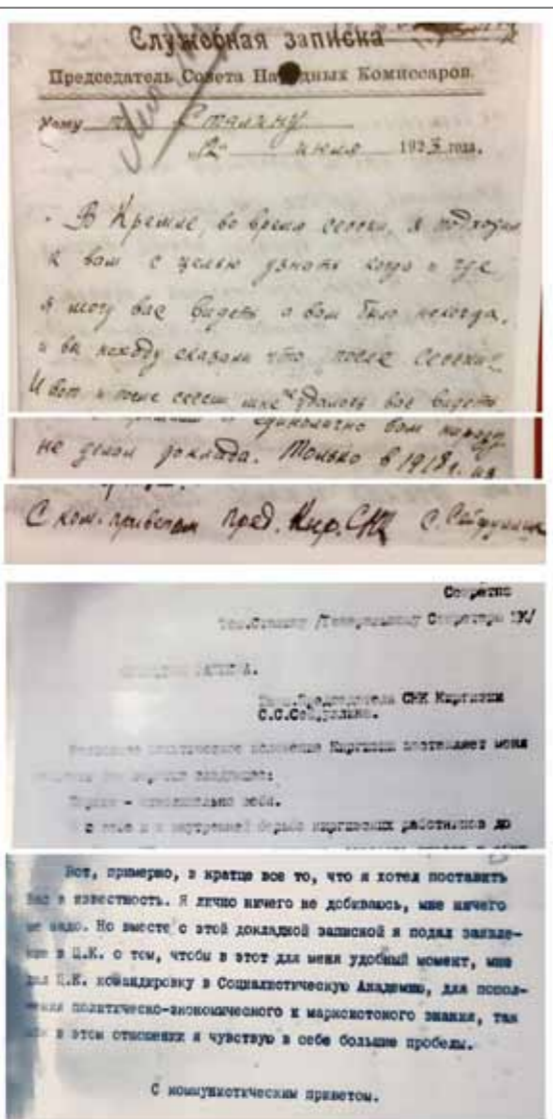 Служебная записка
Председатель Совета Народных Комиссаров.
Кому т. Сталину
"12" июля 1923 года.
В Кремле, во время сессии, я подходил
к вам с целью узнать когда и где
я могу вас видеть а вам было некогда,
и вы находу сказали что после сессии.
И вот и после сессии мне не удалось вас видеть
и единолично вам
не делал доклада. Только в 1918 г. из
С ком. приветом пред. Кир. СНК С.
Секретно
Тов. Сталину /Генеральному Секретарю ЦК/
Председателя СНК Киргизии
политическое положение Киргизии заставляет меня
себя.
внутренней борьбе киргизских работников до
Вот, примерно, в кратце все то, что я хотел поставить
Вас в известность. Я лично ничего не добиваюсь, мне ничего
не надо. Но вместе с этой докладной запиской я подал заявле-
ние в Ц.К. о том, чтобы в этот для меня удобный момент, мне
дал Ц.К. командировку в Социалистическую Академию, для попол-
нения политическо-экономического и марксистского знания, так
как в этом отношении я чувствую в себе большие пробелы.
С коммунистическим приветом.